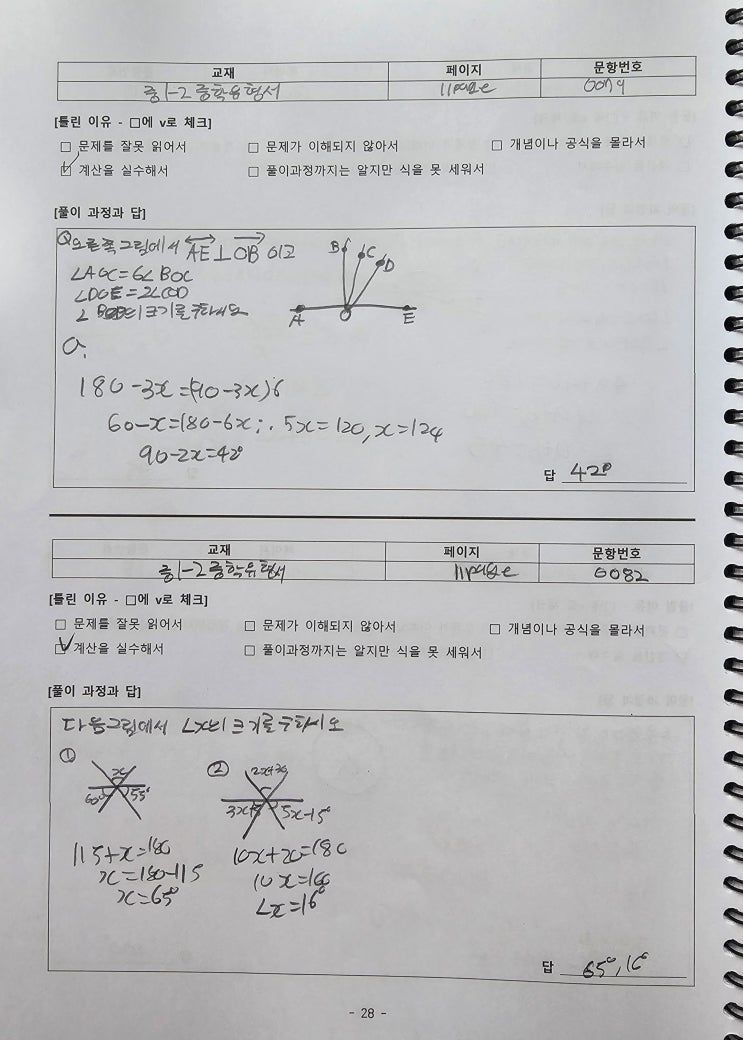 교재 페이지 문항번호
중1-2 중학유형서 11page 0079
[틀린 이유 - □에 v로 체크]
□ 문제를 잘못 읽어서 □ 문제가 이해되지 않아서 □ 개념이나 공식을 몰라서
☑ 계산을 실수해서 □ 풀이과정까지는 알지만 식을 못 세워서
[풀이 과정과 답]
Q 오른쪽 그림에서 AE⊥OB이고
∠AOC=6∠BOC
∠DOE=2∠COD
의 크기를 구하시오
B C D
A O E
180-3x=(90-3x)6
60-x=180-6x ∴ 5x=120, x=124
90-2x=42°
답 42°
교재 페이지 문항번호
중1-2 중학유형서 11page 0082
[틀린 이유 - □에 v로 체크]
□ 문제를 잘못 읽어서 □ 문제가 이해되지 않아서 □ 개념이나 공식을 몰라서
☑ 계산을 실수해서 □ 풀이과정까지는 알지만 식을 못 세워서
[풀이 과정과 답]
다음 그림에서 ∠x의 크기를 구하시오
① ②
x
60° 55°
5x-15°
115+x=180
x=180-115
x=65°
10x+20=180
10x=160
∠x=16°
답 65°, 16°
- 28 -